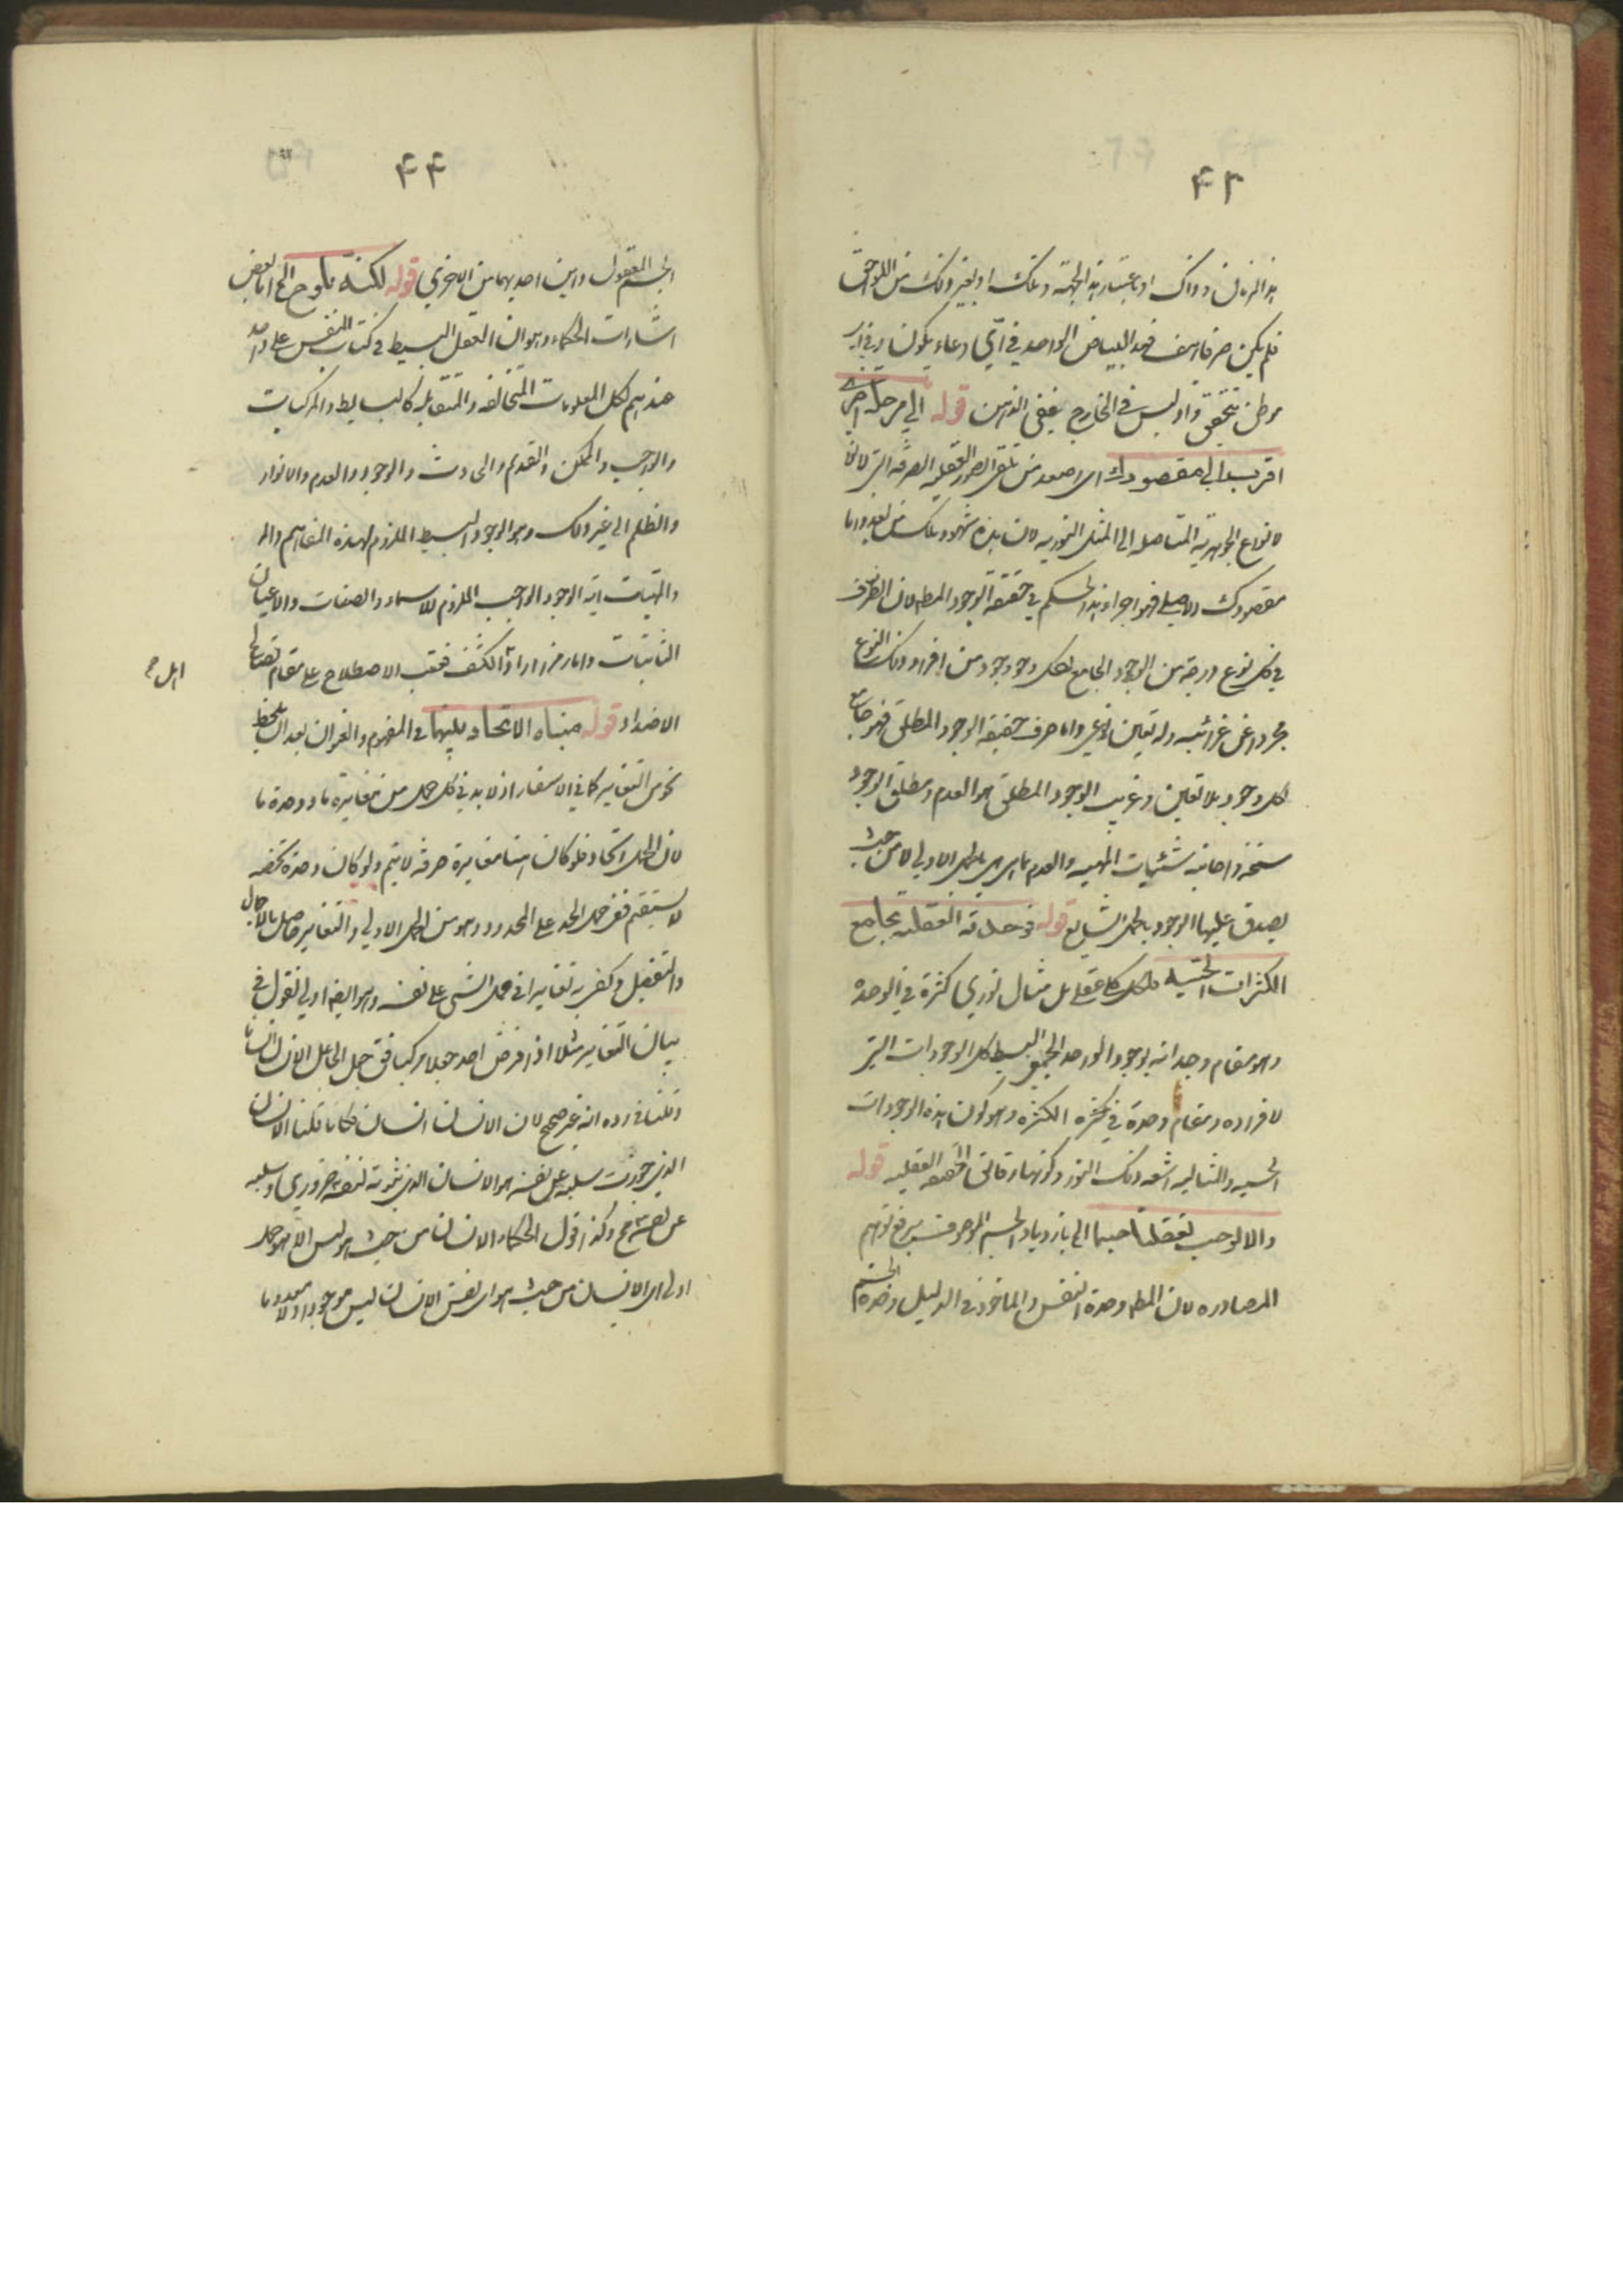 ۴۳
هذا الزمان وذاك او باعتبار هذا لجهة وتلك او بغير ذلك من اللواحق
فلم يكن صرفا هف فهذا البياض الواحد في اي وعاء يكون وفي اي
موطن يتحقق واذ ليس في الخارج ففي الذهن قوله الى مرحلة اخرى
اقرب الى مقصودك اى اصعد من تلقى الصور العقلية الصرفه التى
لانواع الجوهرية المتاصله الى المثل النوريه لان هذه شهود وتلك من بعيد واما
مقصودك الاصلى فهو اجراء هذا الحكم في حقيقة الوجود المط لان الصرف
في كل نوع درجة من الوجود الجامع لكل وجود وجود من افراد ذلك النوع
مجردا عن غرائبه وله تعين نوعى واما صرف حقيقة الوجود المطلق فهو جامع
لكل وجود بلا تعين وغريب الوجود المطلق هو العدم ومطلق الوجود
سنخه واجانبه شيئيات المهيه والعدم بما هى هى بالحمل الاولى لا من حيث
يصدق عليها الوجود بالحمل الشايع قوله فوحدته العقلية تجامع
الكثرات الحسية فلكل كلى عقلى بل مثال نورى كثرة في الوحدة
وهو مقام وجدانه بوجود الواحد الجمعى البسيط كل الوجودات التى
لافراده ومقام وحدة في الكثره وهو كون هذه الوجودات
الحسيه والمثاليه اشعه ذلك النور وكونها رقائق الحقيقه العقليه قوله
والا لوجب تعقلنا جسما الى بازدياد الجسم الموصوف يرفع توهم
المصادره لان المط وحدة النفس والماخوذ في الدليل وحدة الجسم
۴۴
الجسم المعقول واين احديهما من الاخرى قوله لكنه يلوح الخ اما بعض
اشارات الحكماء وهو ان العقل البسيط في كتاب النفس على واحد
عندهم لكل المعلومات المتخالفه والمتقابله كالبسايط والمركبات
والواجب والممكن والقديم والحادث والوجود والعدم والانوار
والظلم الى غير ذلك وهو الوجود البسيط الملزوم لهذه المفاهيم
والمهيات اية الوجود الواجب الملزوم للاسماء والصفات والاعيان
الثابتات واما رمز ارادة الكشف فعقب الاصطلاح على مقام تصالح
اهل
الاضداد قوله مبناه الاتحاد بينهما في المفهوم والعنوان بعد ان يلحظ
نحو من التغاير كما في الاسفار اذ لا بد في كل حمل من مغايرة ما ووحدة ما
لان الحمل اتحاد فلو كان هنا مغايرة صرفه لا يتم ولو كان وحدة محضه
لا يستقيم ففى حمل الحد على المحدود وهو من الحمل الاولى والتغاير حاصل بالاجمال
والتفصيل وكفى به تغايرا في حمل الشئ على نفسه وهو ايضا اولى نقول في
بيان التغاير مثلا اذا فرض احد جعلا مركبا فى جعل الجاعل الانسان انسانا
وقلنا في رده انه غير صحيح لان الانسان انسان فكانا قلنا الانسان
الذى جوزت سلبه عن نفسه هو الانسان الذى ثبوته لنفسه ضرورى وسلبه
عن نفسه مح وكذا قول الحكماء الانسان من حيث هو ليس الا هو حمل
اولى اى الانسان من حيث هو اى نفس الانسان ليس موجودا ولا معدوما